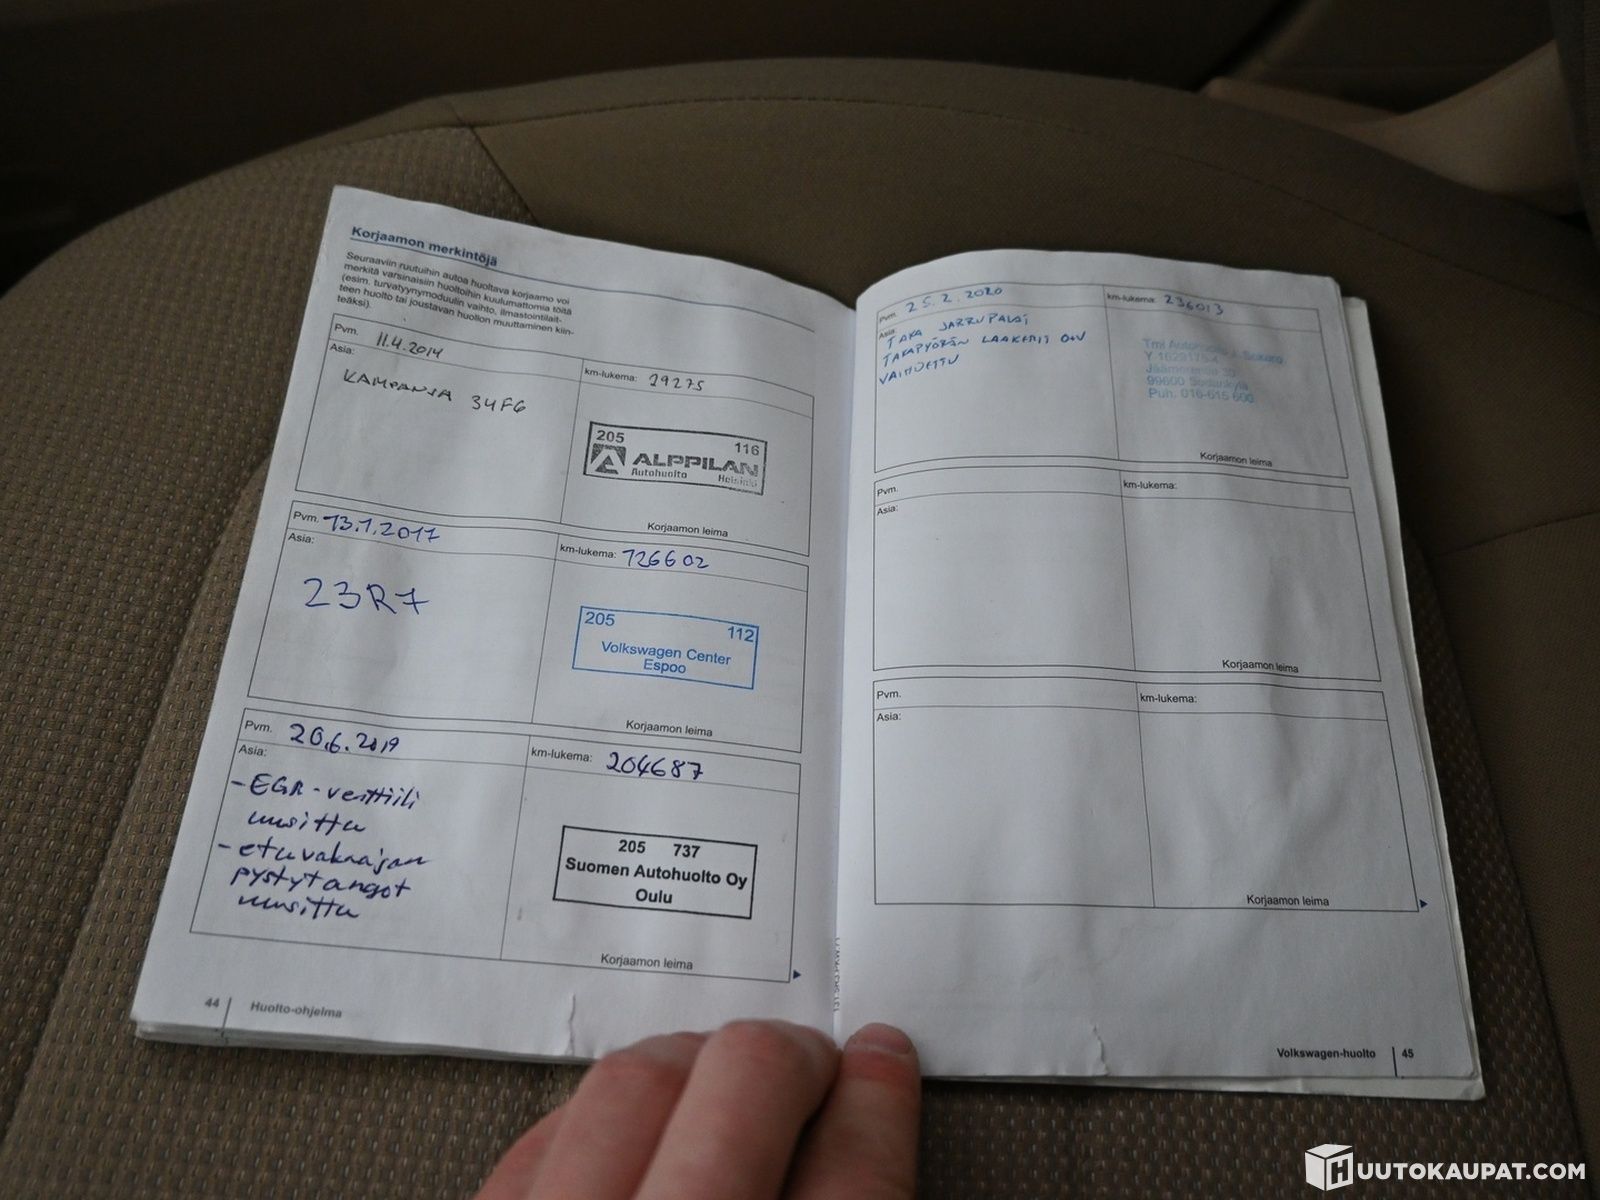 Korjaamon merkintöjä
Seuraaviin ruutuihin autoa huoltava korjaamo voi
merkitä varsinaisiin huoltoihin kuulumattomia töitä
(esim. turvatyynymoduulin vaihto, ilmastointilait-
teen huolto tai joustavan huollon muuttaminen kiin-
teäksi).
Pvm. 11.4.2014
km-lukema: 29275
Asia:
KAMPANJA 34F6
205 116
ALPPILAN
Autohuolto Helsinki
Korjaamon leima
Pvm. 13.1.2017
km-lukema: 126602
Asia:
23R7
205 112
Volkswagen Center
Espoo
Korjaamon leima
Pvm. 20.6.2019
km-lukema: 204687
Asia:
- EGR-venttiili
uusittu
- etuvakaajan
pystytangot
uusittu
205 737
Suomen Autohuolto Oy
Oulu
Korjaamon leima
44 Huolto-ohjelma
Pvm. 25.2.2020
km-lukema: 236013
Asia:
TAKA JARRUPALAT
TAKAPYÖRÄN LAAKERIT O+V
VAIHDETTU
Tmi Autohuolto J.
Y 1629175-4
99600 Sodankylä
Puh. 016-615 600
Korjaamon leima
Pvm.
km-lukema:
Asia:
Korjaamon leima
Pvm.
km-lukema:
Asia:
Korjaamon leima
Volkswagen-huolto 45
HUUTOKAUPAT.COM